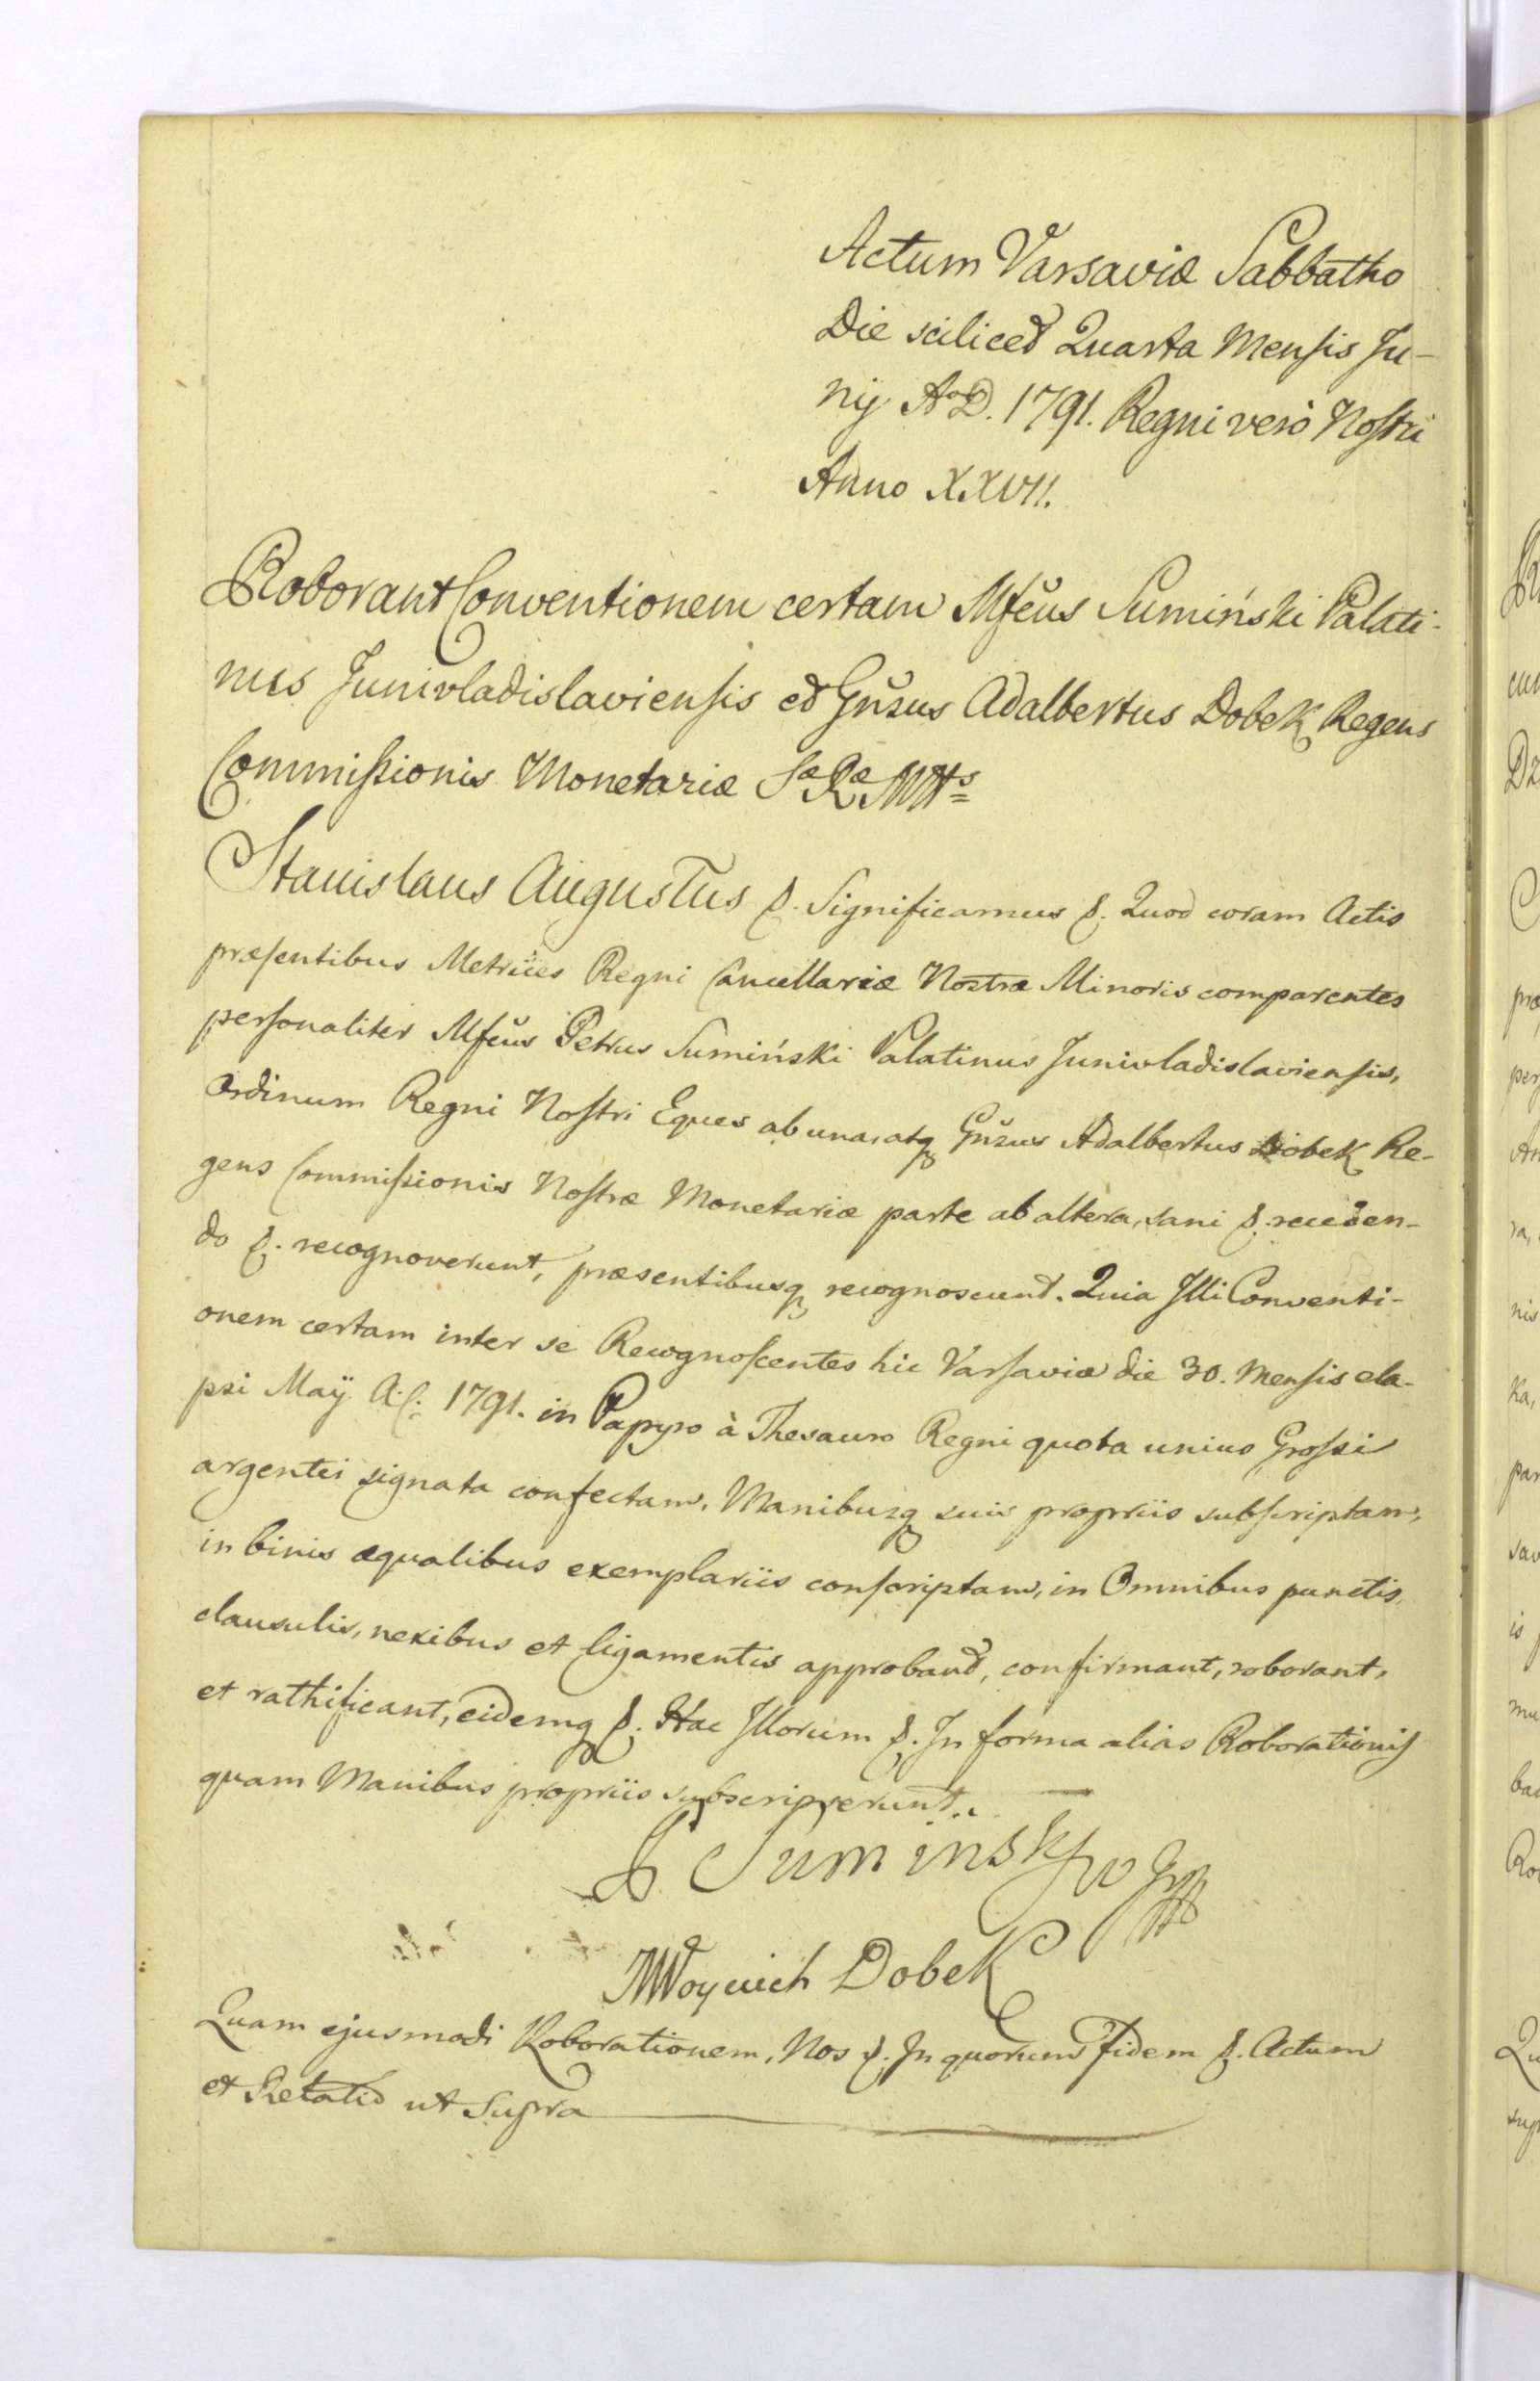 Actum Varsaviæ Sabbatho
Die scilicet Quarta Mensis Ju-
nij A.D. 1791. Regni verò Nostri
Anno XXVII.
Roborant Conventionem certam Mfcus Sumiński Palati-
nus Juniwladislaviensis et Gnsus Adalbertus Dobek Regens
Commissionis Monetariæ Sæ Ræ Mttis
Stanislaus Augustus &. Significamus &. Quod coram Actis
præsentibus Metrices Regni Cancellariæ Nostræ Minoris comparentes
personaliter Mfcus Petrus Sumiński Palatinus Juniwladislaviensis,
Ordinum Regni Nostri Eques ab una, atq Gnsus Adalbertus Dobek Re-
gens Commissionis Nostræ Monetariæ parte ab altera, sani &. receden-
do &. recognoverunt, præsentibusq recognoscunt. Quia Illi Conventi-
onem certam inter se Recognoscentes hic Varsaviæ die 30. Mensis ela-
psi Maÿ A.C. 1791. in Papyro à Thesauro Regni quota unius Grossi
argentei signata confectam, Manibusq suis propriis subscriptam,
in binis æqualibus exemplariis conscriptam, in Omnibus punctis,
clausulis, nexibus et ligamentis approbant, confirmant, roborant,
et rathificant, eidemq &. Hac Illorum &. In forma alias Roborationis
quam Manibus propriis subscripserunt.
P Sumiński w
Woyciech Dobek
Quam ejusmodi Roborationem, Nos &. In quorum Fidem &. Actum
et Relatio ut Supra